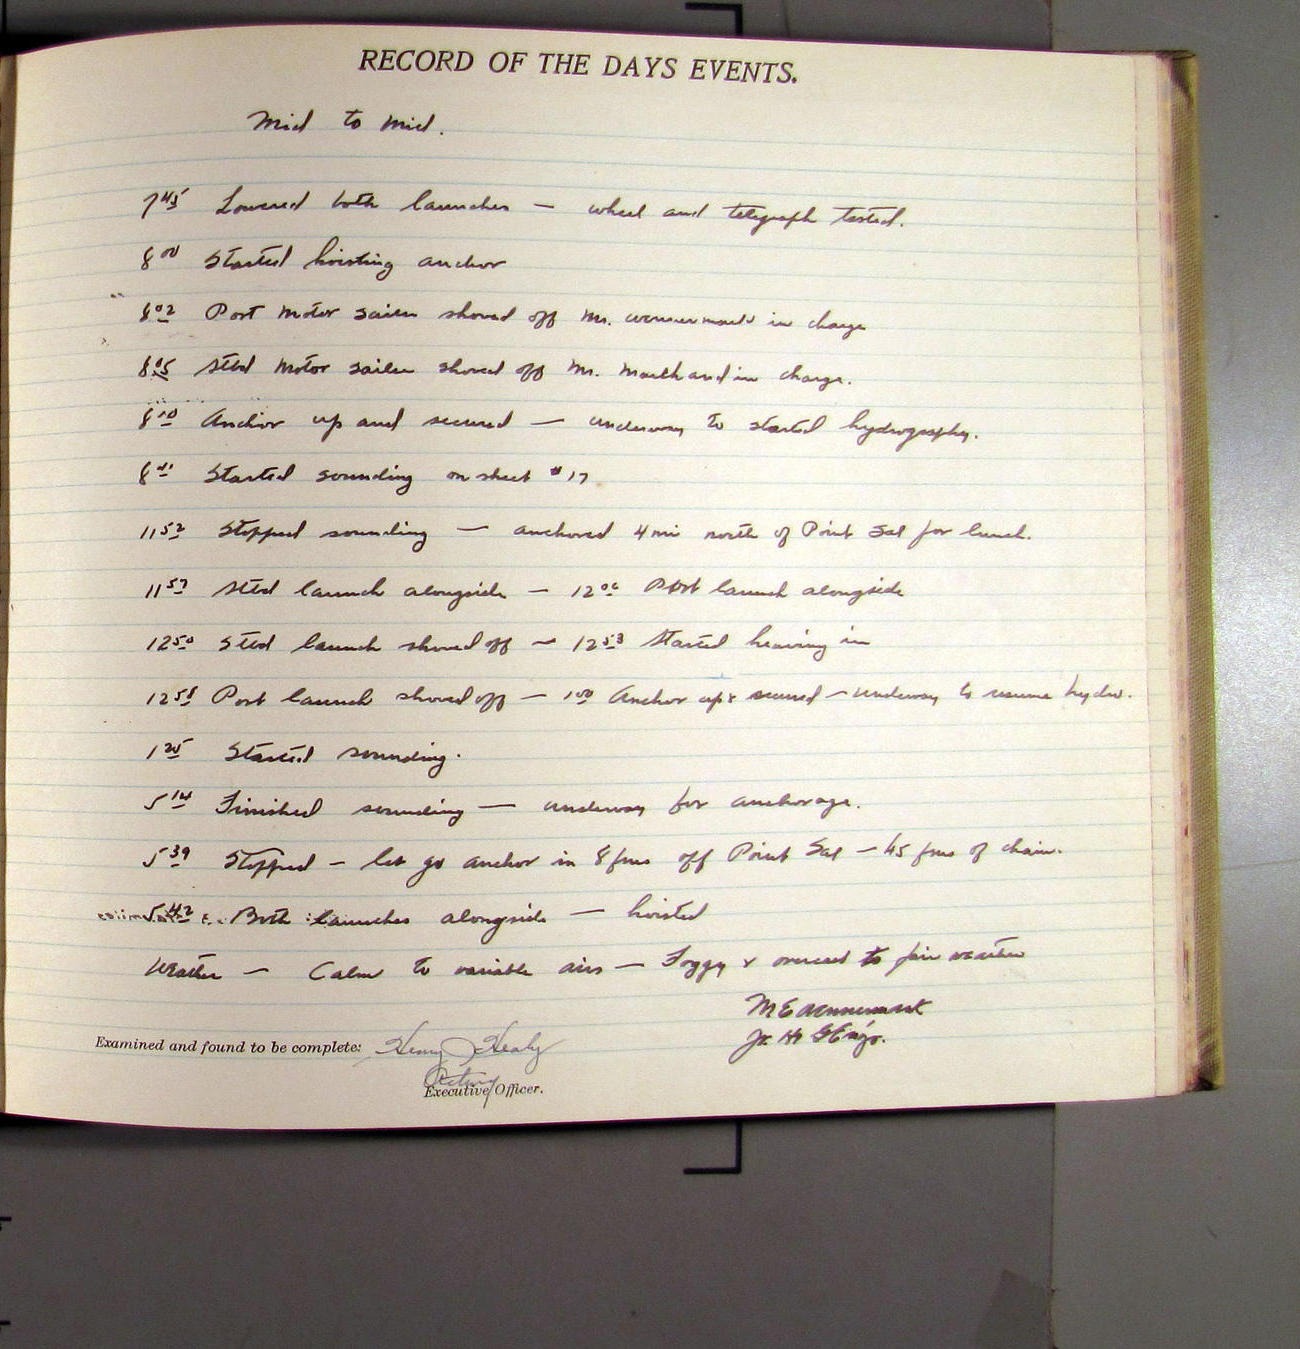 RECORD OF THE DAYS EVENTS.
Mid to Mid.
7 45 Lowered both launches — wheel and telegraph tested.
8 00 Started hoisting anchor
8 02 Port motor sailer shoved off Mr. Wennermark in charge
8 05 Stbd motor sailer shoved off Mr. in charge.
8 10 Anchor up and secured — underway to started hydrography.
8 Started sounding on sheet #17
11 52 Stopped sounding — anchored 4 mi north of Point Sal for lunch.
11 57 Stbd launch alongside — 12 Port launch alongside
12 50 Stbd launch shoved off — 12 53 Started heaving in
12 58 Port launch shoved off — 1 00 Anchor up & secured — underway to resume hydro.
1 Started sounding.
5 14 Finished sounding — underway for anchorage.
5 39 Stopped — let go anchor in 8 fms off Point Sal — 45 fms of chain.
5 42 Both launches alongside — hoisted
Weather — Calm to variable airs — Foggy & overcast to fair weather
M E Wennermark
Jr. H & G Engr.
Examined and found to be complete: Henry J Healy
Acting
Executive Officer.